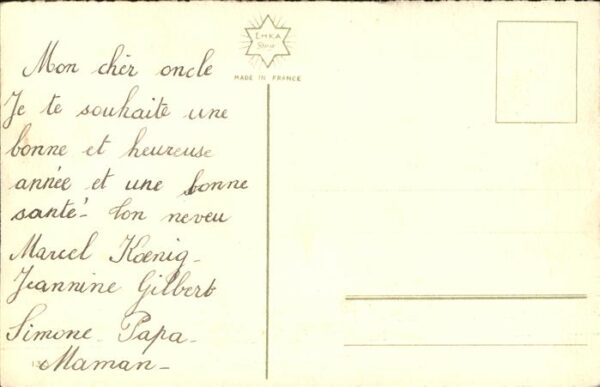 Mon chér oncle
Je te souhaite une
bonne et heureuse
année et une bonne
santé - ton neveu
Marcel Kœnig -
Jeannine Gilbert
Simone - Papa -
Maman -
EMKA
Paris
MADE IN FRANCE